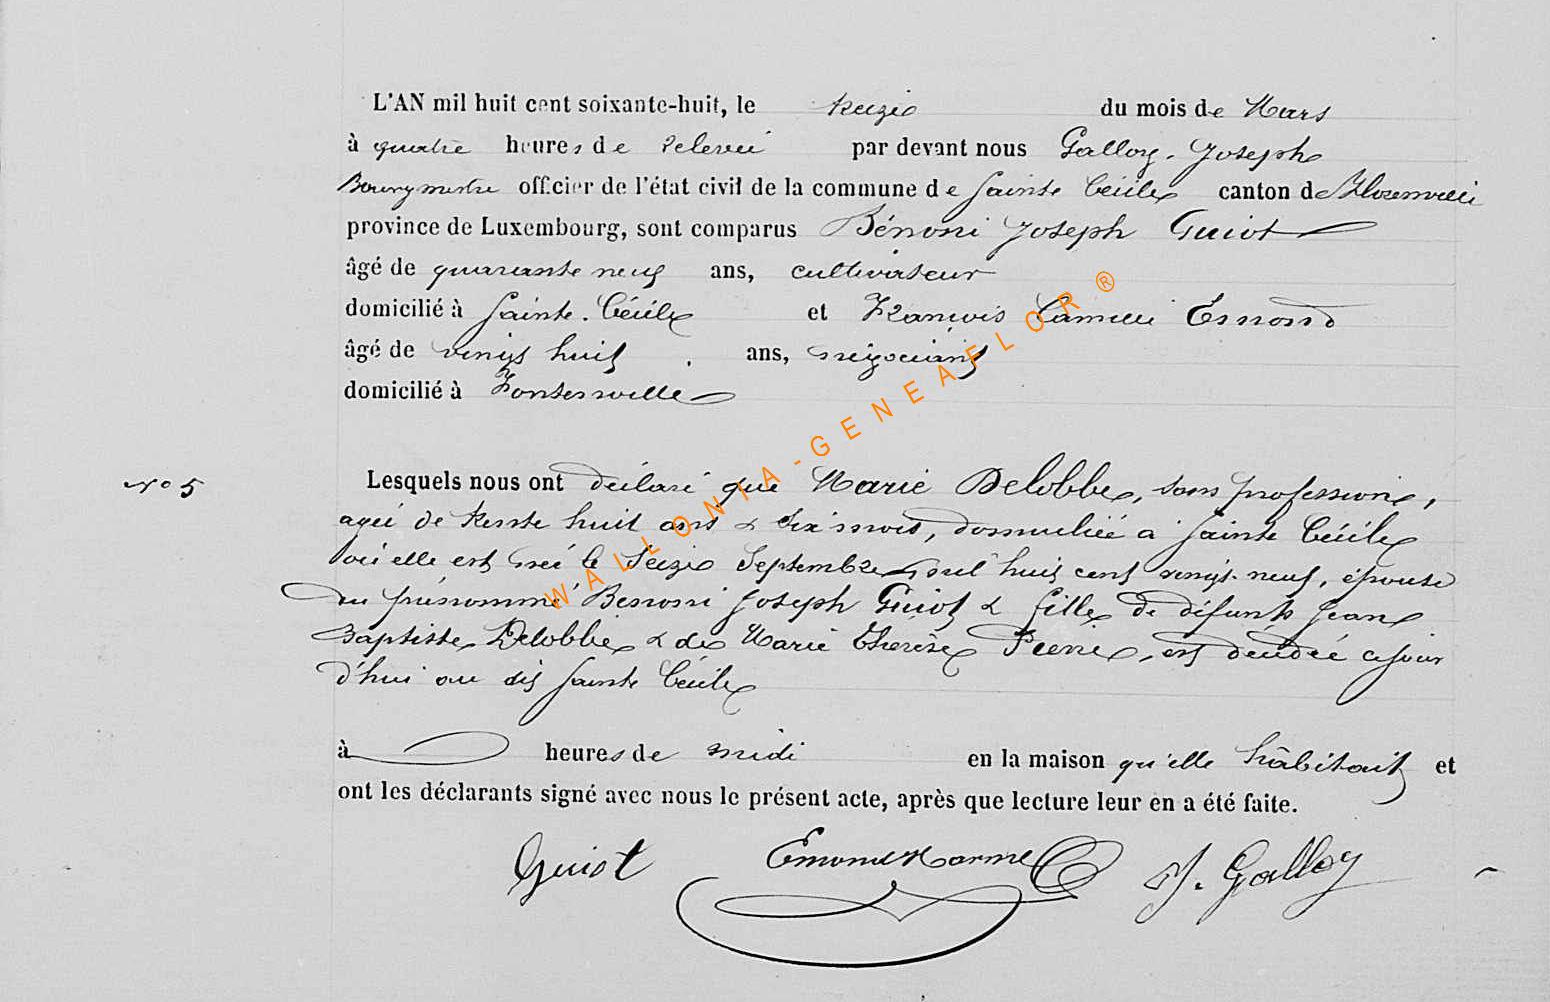 L'AN mil huit cent soixante-huit, le treize du mois de Mars
à quatre heures de relevée par devant nous Galloy, Joseph
Bourgmestre officier de l'état civil de la commune de Sainte Cécile canton de Florenville
province de Luxembourg, sont comparus Bénoni Joseph Guiot
âgé de quarante neuf ans, cultivateur
domicilié à Sainte-Cécile et François Camille Emond
âgé de vingt huit ans, négociant
domicilié à Fontenoille
No 5 Lesquels nous ont déclaré que Marie Delobbe, sans profession,
agée de trente huit ans & six mois, domiciliée à Sainte Cécile
où elle est née le seize Septembre mil huit cent vingt-neuf, épouse
du prénommé Benoni Joseph Guiot & fille de défunts Jean
Baptiste Delobbe & de Marie Thérèse Pierre, est décédée cejour
d'hui au dit Sainte Cécile
à heures de midi en la maison qu'elle habitait et
ont les déclarants signé avec nous le présent acte, après que lecture leur en a été faite.
Guiot Emond J. Galloy
WALLONIA-GENEAFLOR ®